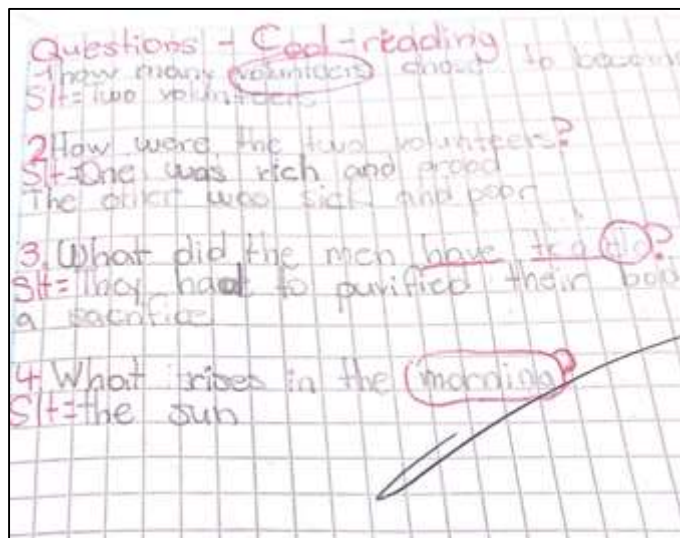 Questions - Cool-reading
1 how many volunteers to become
Slt= Two volunteers
2 How were the two volunteers?
Slt= One was rich and prood
The other was sick and poor
3. What did the men have to do?
Slt= They had to purified their
a sacrifice
4 What rises in the morning?
Slt= the sun